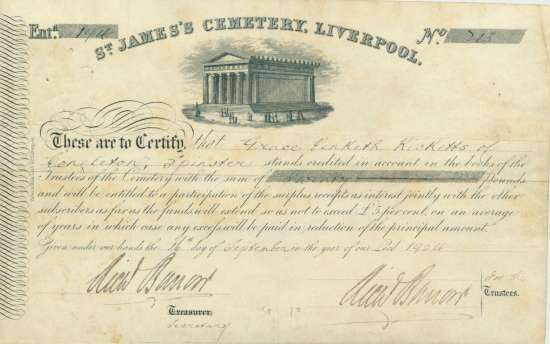 Entd. 194
No. 213
ST JAMES'S CEMETERY, LIVERPOOL.
These are to Certify, that Grace Penketh Ricketts of
Congleton, Spinster stands credited in account in the books of the
Trustees of the Cemetery with the sum of pounds
and will be entitled to a participation of the surplus receipts as interest jointly with the other
subscribers as far as the funds will extend so as not to exceed £5 per cent, on an average
of years in which case any excess will be paid in reduction of the principal amount.
Given under our hands the day of September in the year of our Lord 1904
Treasurer.
Secretary
For the
Trustees.